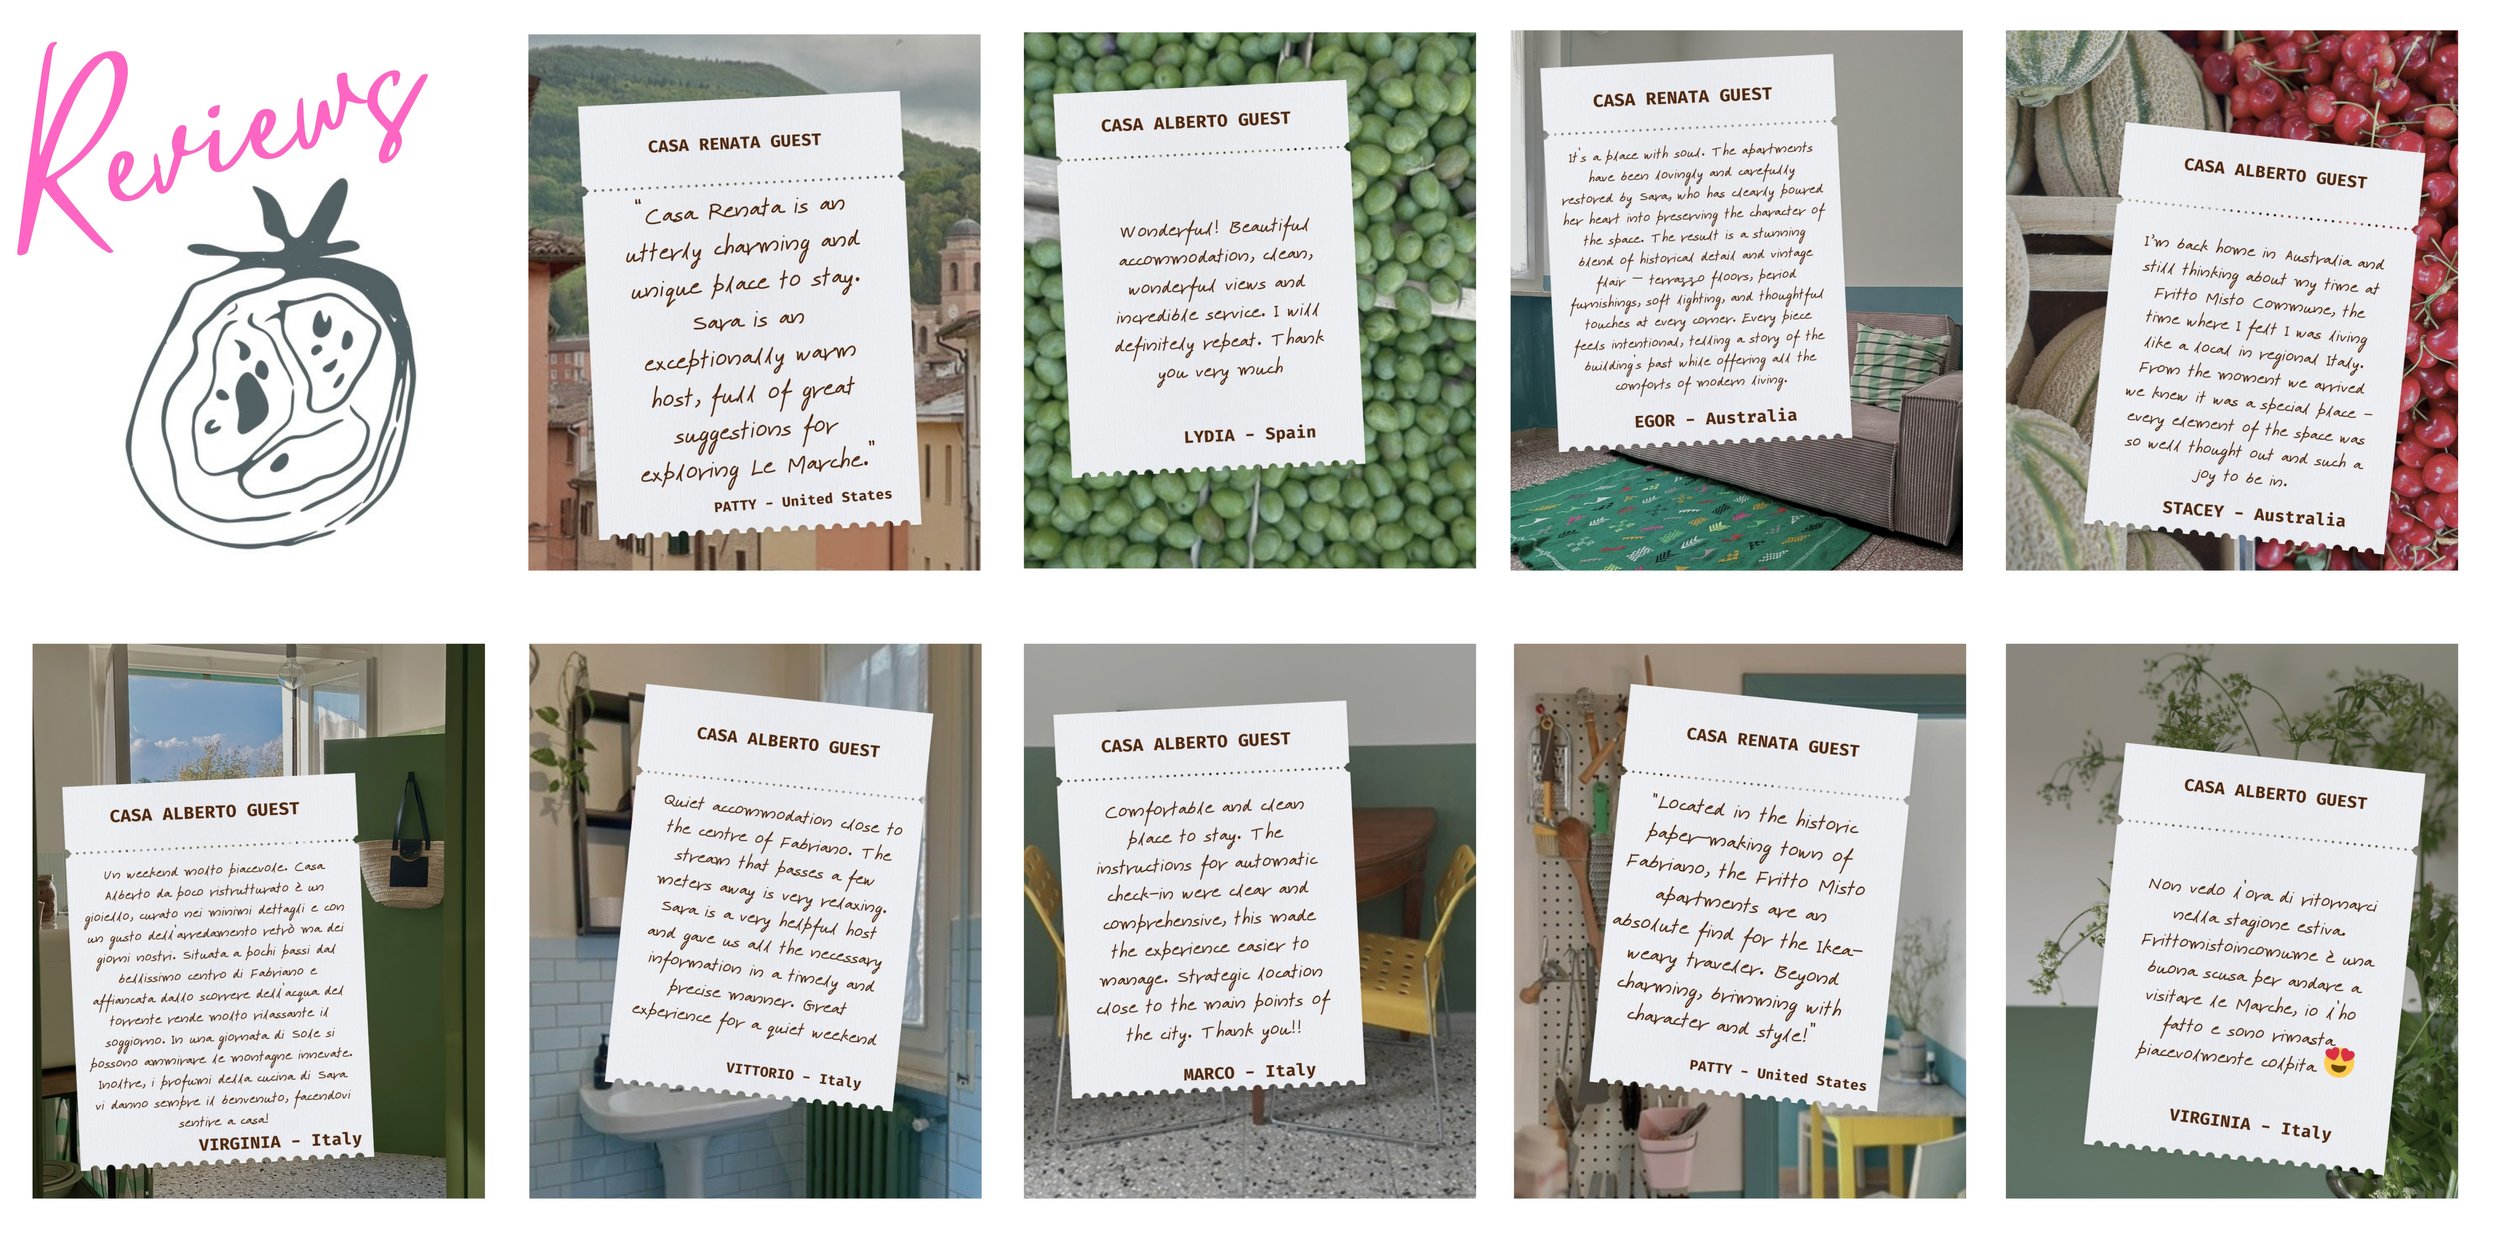 Reviews
CASA RENATA GUEST
"Casa Renata is an
utterly charming and
unique place to stay.
Sara is an
exceptionally warm
host, full of great
suggestions for
exploring Le Marche."
PATTY – United States
CASA ALBERTO GUEST
Wonderful! Beautiful
accommodation, clean,
wonderful views and
incredible service. I will
definitely repeat. Thank
you very much
LYDIA – Spain
CASA RENATA GUEST
It's a place with soul. The apartments
have been lovingly and carefully
restored by Sara, who has clearly poured
her heart into preserving the character of
the space. The result is a stunning
blend of historical detail and vintage
flair — terrazzo floors, period
furnishings, soft lighting, and thoughtful
touches at every corner. Every piece
feels intentional, telling a story of the
building's past while offering all the
comforts of modern living.
EGOR – Australia
CASA ALBERTO GUEST
I'm back home in Australia and
still thinking about my time at
Fritto Misto Commune, the
time where I felt I was living
like a local in regional Italy.
From the moment we arrived
we knew it was a special place –
every element of the space was
so well thought out and such a
joy to be in.
STACEY – Australia
CASA ALBERTO GUEST
Un weekend molto piacevole. Casa
Alberto da poco ristrutturato è un
gioiello, curato nei minimi dettagli e con
un gusto dell'arredamento retrò ma dei
giorni nostri. Situata a pochi passi dal
bellissimo centro di Fabriano e
affiancata dallo scorrere dell'acqua del
torrente rende molto rilassante il
soggiorno. In una giornata di Sole si
possono ammirare le montagne innevate.
Inoltre, i profumi della cucina di Sara
vi danno sempre il benvenuto, facendovi
sentire a casa!
VIRGINIA – Italy
CASA ALBERTO GUEST
Quiet accommodation close to
the centre of Fabriano. The
stream that passes a few
meters away is very relaxing.
Sara is a very helpful host
and gave us all the necessary
information in a timely and
precise manner. Great
experience for a quiet weekend
VITTORIO – Italy
CASA ALBERTO GUEST
Comfortable and clean
place to stay. The
instructions for automatic
check-in were clear and
comprehensive, this made
the experience easier to
manage. Strategic location
close to the main points of
the city. Thank you!!
MARCO – Italy
CASA RENATA GUEST
"Located in the historic
paper-making town of
Fabriano, the Fritto Misto
apartments are an
absolute find for the Ikea-
weary traveler. Beyond
charming, brimming with
character and style!"
PATTY – United States
CASA ALBERTO GUEST
Non vedo l'ora di ritornarci
nella stagione estiva.
Frittomistoincomune è una
buona scusa per andare a
visitare le Marche, io l'ho
fatto e sono rimasta
piacevolmente colpita 😍
VIRGINIA – Italy